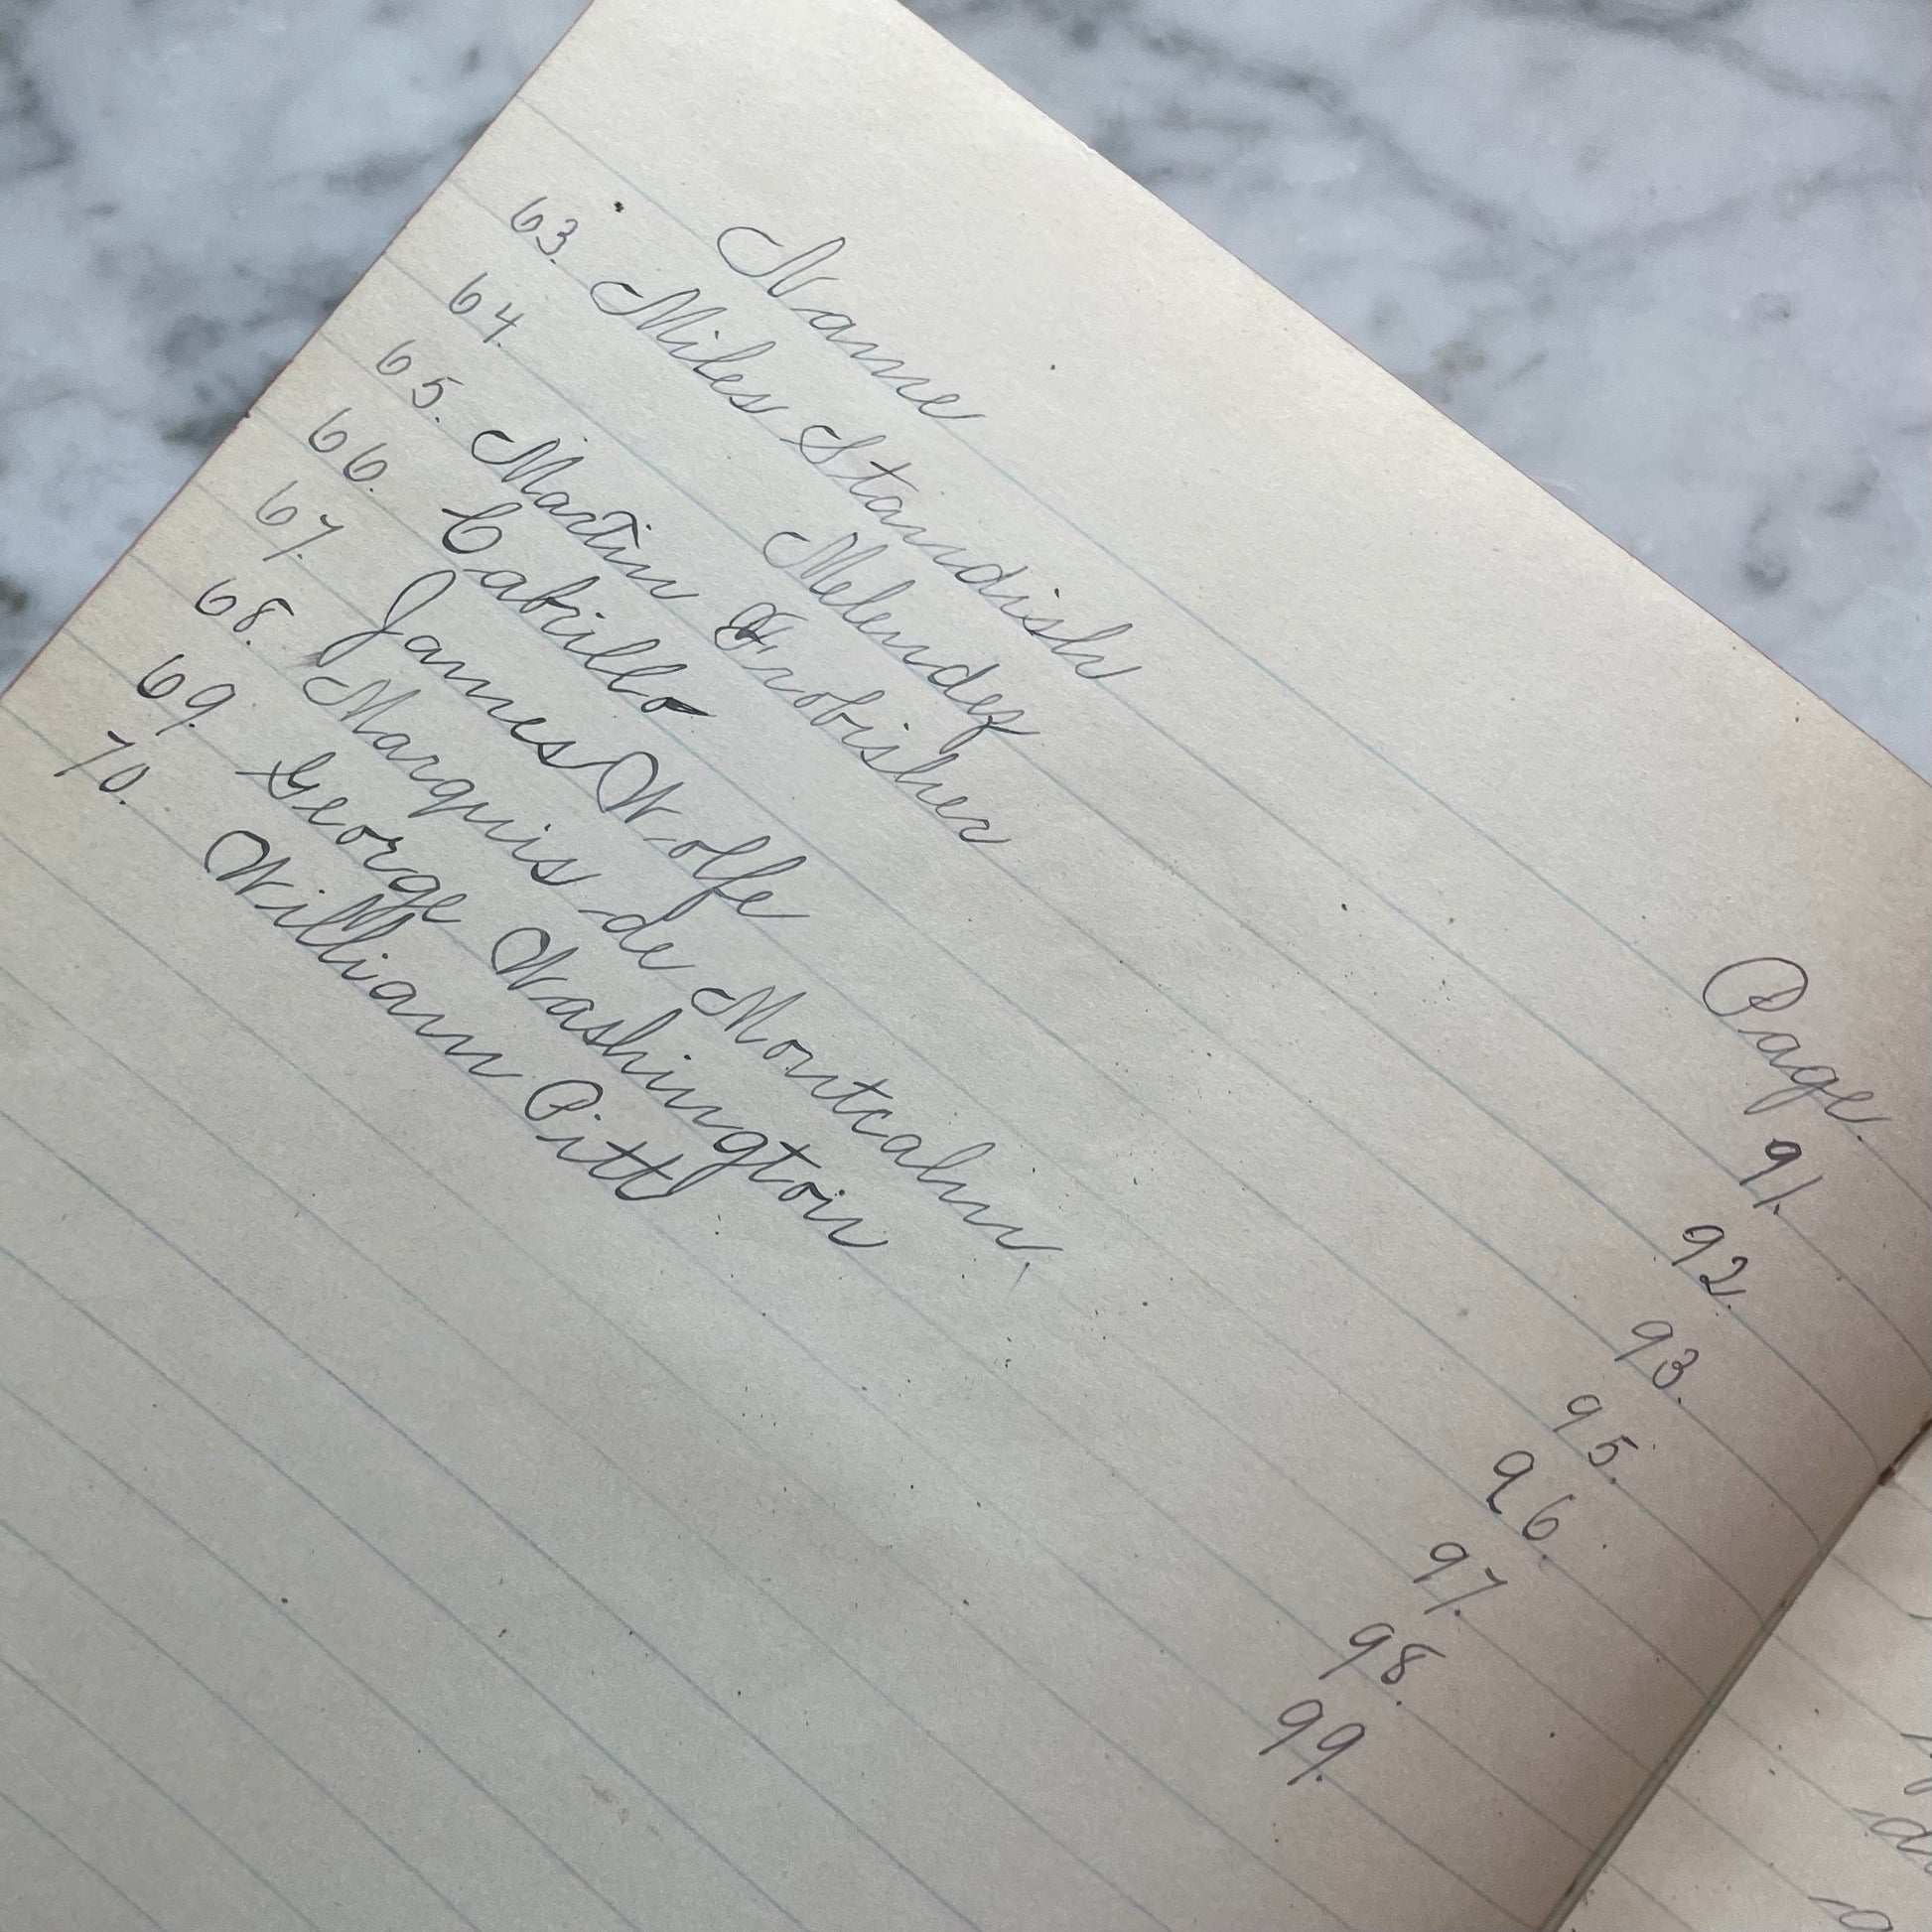 Name Page.
63. Miles Standish 91.
64. Melendez 92.
65. Martin Frobisher 93.
66. Cabrillo 95.
67. James Wolfe 96.
68. Marquis de Montcalm 97.
69. George Washington 98.
70. William Pitt 99.